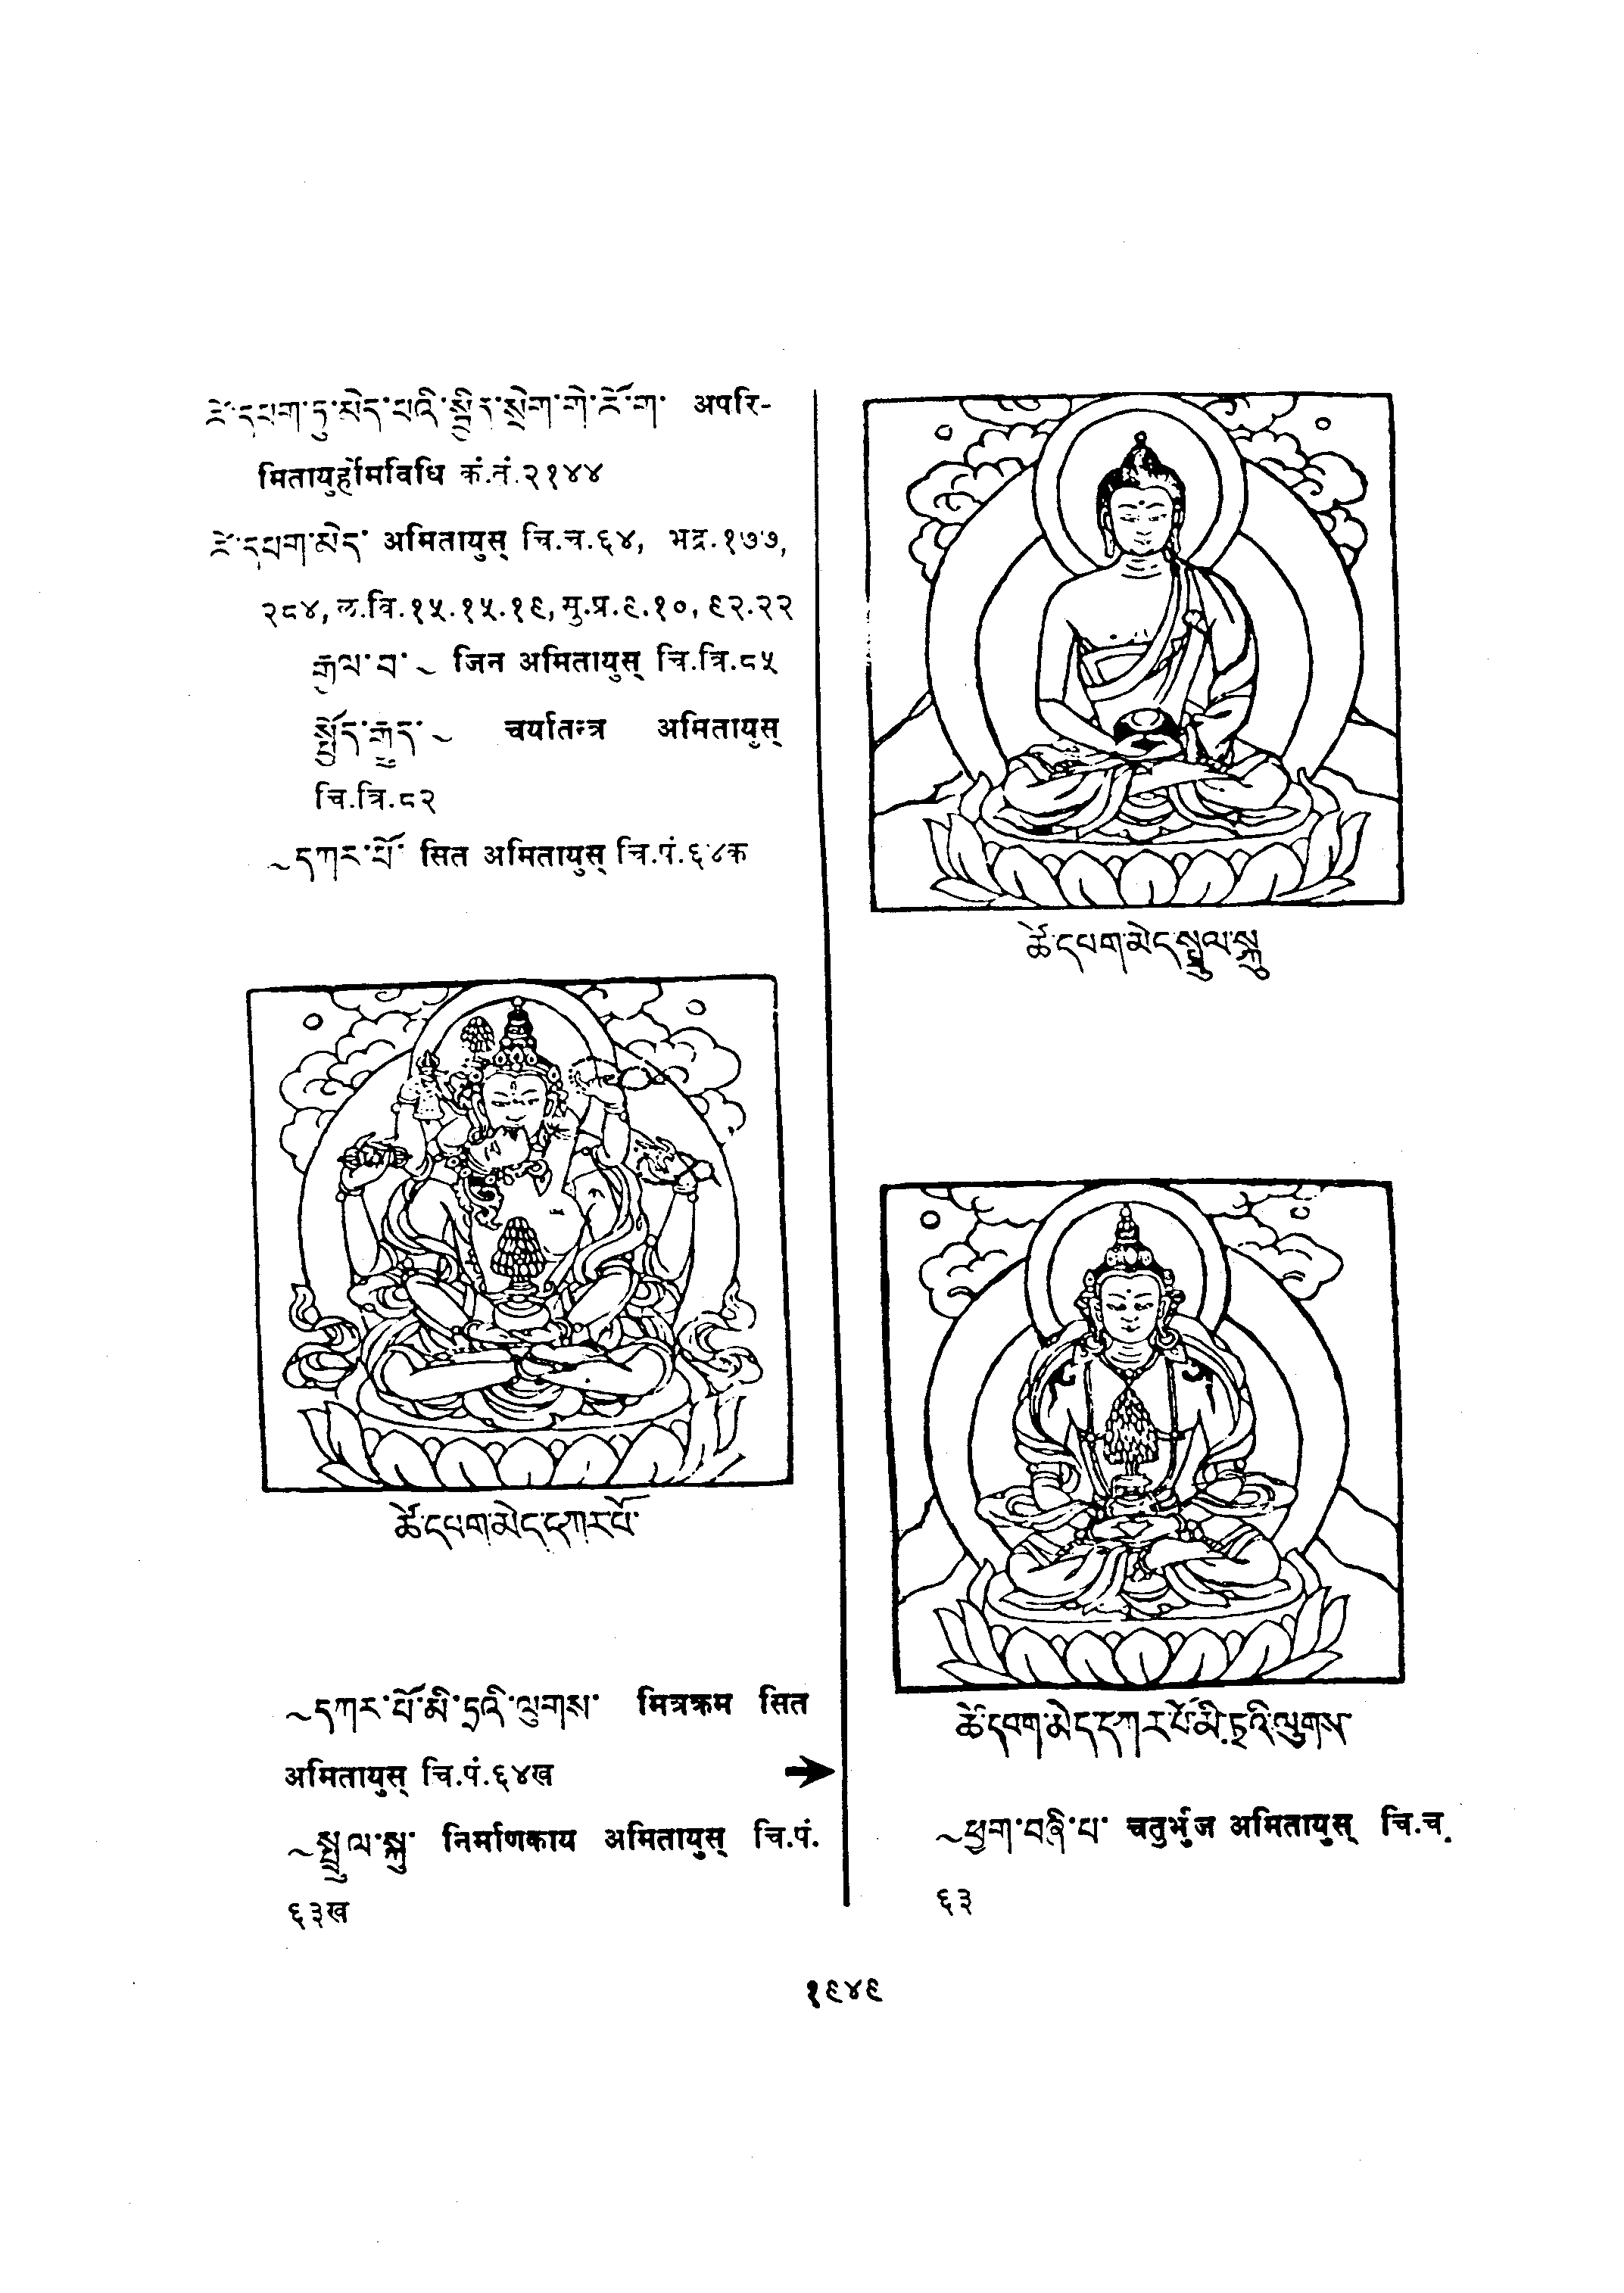 ཚེ་དཔག་ཏུ་མེད་པའི་སྦྱིན་སྲེག་གི་ཆོ་ག་ अपरि-
मितायुर्होमविधि कं.तं.२१४४
ཚེ་དཔག་མེད་ अमितायुस् चि.च.६४, भद्र.१७७,
२८४, ल.वि.१५.१५.१९, सु.प्र.९.१०, ९२.२२
རྒྱལ་བ་ ~ जिन अमितायुस् चि.त्रि.८५
སྤྱོད་རྒྱུད་ ~ चर्यातन्त्र अमितायुस्
चि.त्रि.८२
~དཀར་པོ་ सित अमितायुस् चि.पं.६४क
ཚེ་དཔག་མེད་དཀར་པོ་
~དཀར་པོ་མི་ཏྲའི་ལུགས་ मित्रक्रम सित
अमितायुस् चि.पं.६४ख
~སྤྲུལ་སྐུ་ निर्माणकाय अमितायुस् चि.पं.
६३ख
ཚེ་དཔག་མེད་སྤྲུལ་སྐུ
ཚེ་དཔག་མེད་དཀར་པོ་མི་ཏྲའི་ལུགས་
~ཕྱག་བཞི་པ་ चतुर्भुज अमितायुस् चि.च.
६३
१९४९